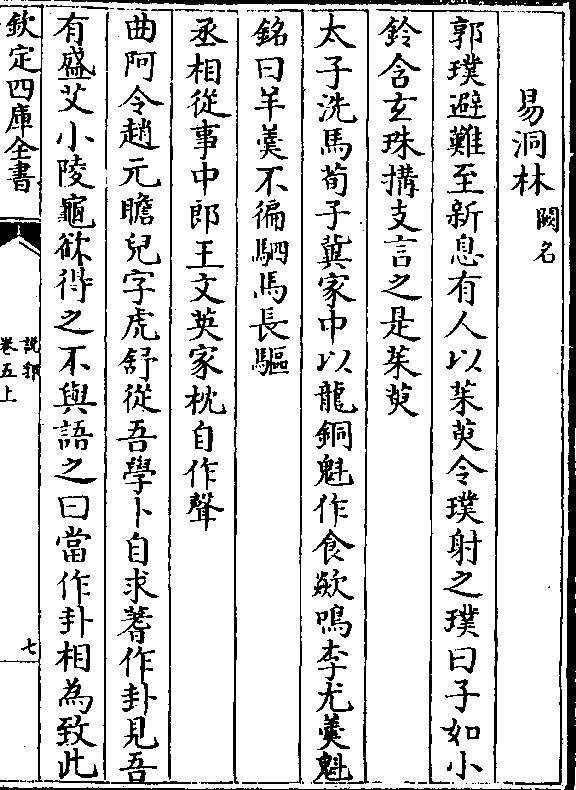 易洞林 闕名
郭璞避難至新息有人以茱萸令璞射之璞曰子如小
鈴含玄珠搆支言之是茱萸
太子洗馬荀子冀家中以龍銅魁作食欻鳴李尤羹魁
銘曰羊羹不徧駟馬長驅
丞相從事中郎王文英家枕自作聲
曲阿令趙元瞻兒字虎舒從吾學卜自求蓍作卦見吾
有盛艾小陵龜欲得之不與語之曰當作卦相為致此
欽定四庫全書
説郛
卷五上
七